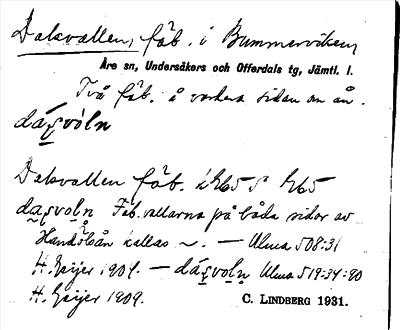 Dalsvallen, fäb. i Bummerviken,
Åre sn, Undersåkers och Offerdals tg, Jämtl. l.
Två fäb. å vardera sidan om ån.
Dalsvallen fäb.
Fäb. vallarna på båda sidor av
Handölsån kallas ~. — Ulma 508:31
H. Geijer 1904. — Ulma 519:34:80
H. Geijer 1909.
C. LINDBERG 1931.